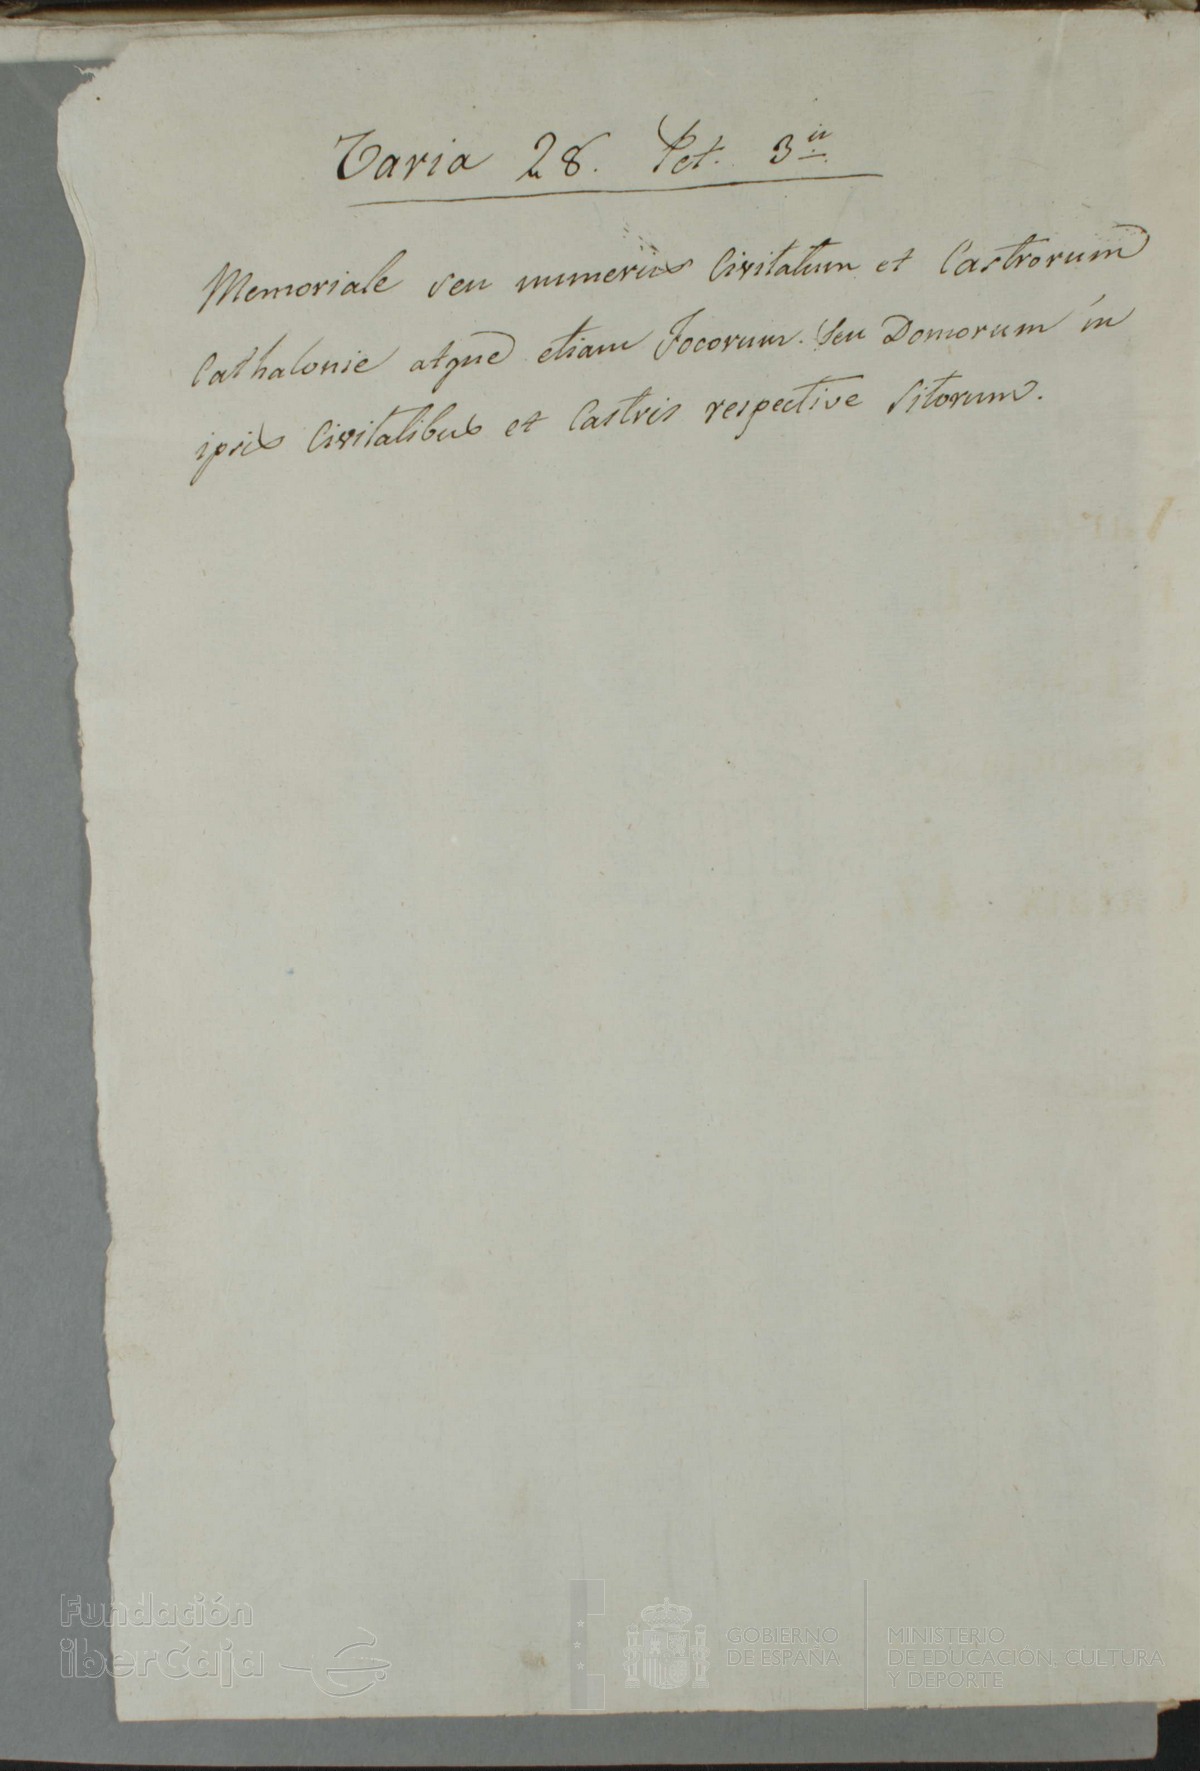 Varia 28. Pet. 3ii
Memoriale seu numerus Civitatum et Castrorum
Cathalonie atque etiam Focorum. Seu Domorum in
ipsis Civitatibus et Castris respective sitorum.
Fundación
iberCaja
GOBIERNO
DE ESPAÑA
MINISTERIO
DE EDUCACIÓN, CULTURA
Y DEPORTE